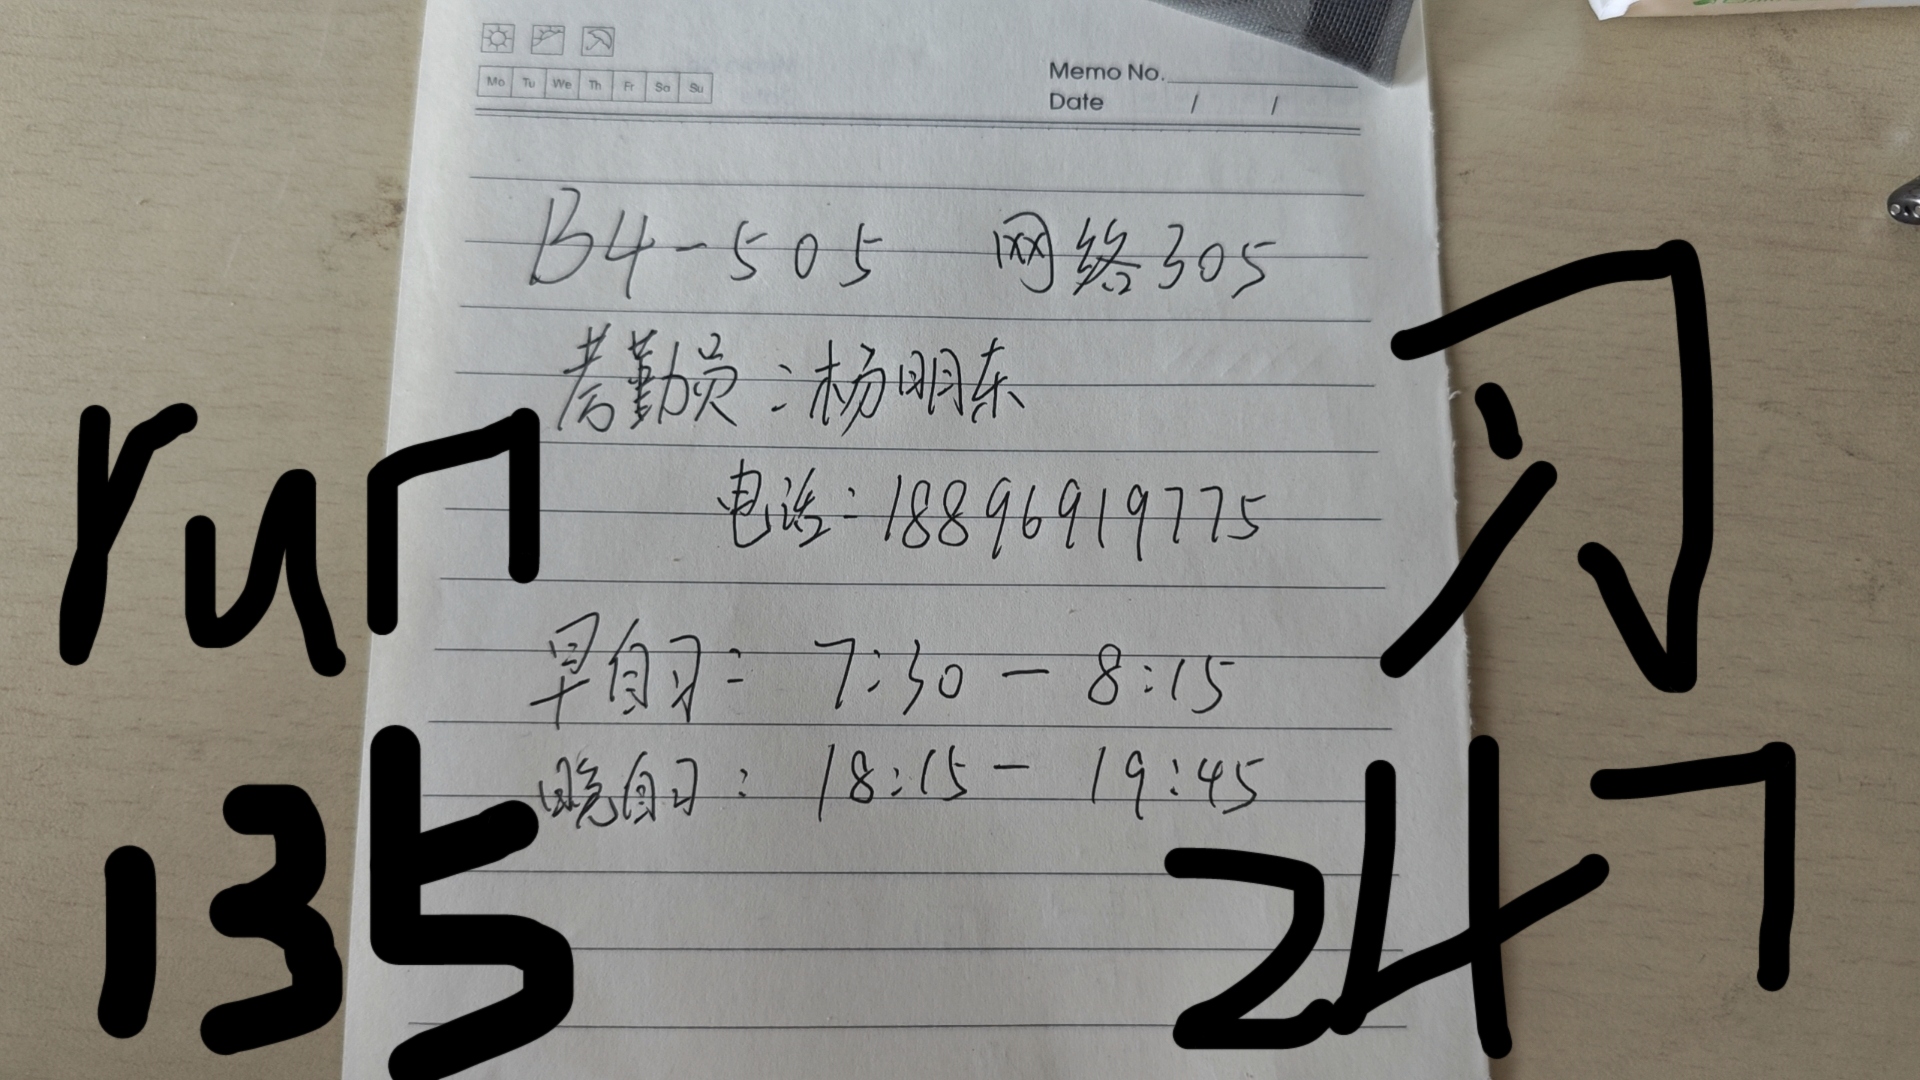 Mo Tu We Th Fr Sa Su
Memo No.
Date / /
B4-505 网络305
考勤员:杨明东
电话:18896919775
早自习: 7:30 — 8:15
晚自习: 18:15 — 19:45
run
135
247